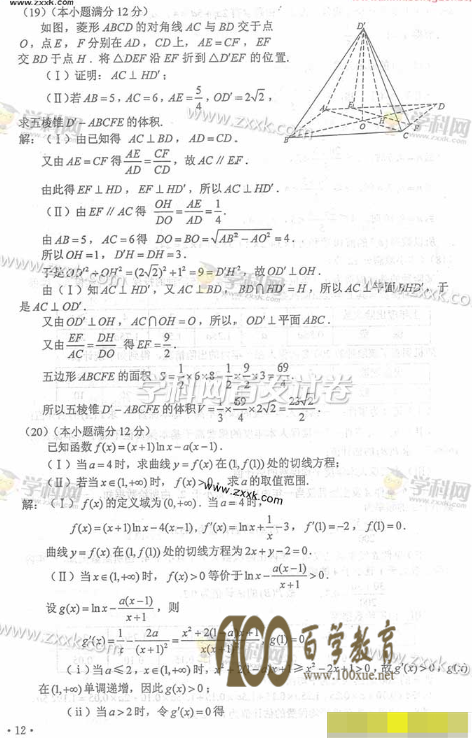 www.zxxk.com
(19)(本小题满分12分)
如图，菱形ABCD的对角线AC与BD交于点
O，点E，F分别在AD，CD上，AE=CF，EF
交BD于点H．将△DEF沿EF折到△D'EF的位置．
(Ⅰ)证明：AC⊥HD'；
(Ⅱ)若AB=5，AC=6，AE=5/4，OD'=2√2，
求五棱锥D'-ABCFE的体积．
解：(Ⅰ)由已知得 AC⊥BD，AD=CD．
又由AE=CF得 AE/AD=CF/CD，故AC∥EF．
由此得EF⊥HD，EF⊥HD'，所以AC⊥HD'．
(Ⅱ)由EF∥AC得 OH/DO=AE/AD=1/4．
由AB=5，AC=6得 DO=BO=√(AB²-AO²)=4．
所以OH=1，D'H=DH=3．
于是OD'²+OH²=(2√2)²+1²=9=D'H²，故OD'⊥OH．
由(Ⅰ)知AC⊥HD'，又AC⊥BD，BD∩HD'=H，所以AC⊥平面BHD'，于
是AC⊥OD'．
又由OD'⊥OH，AC∩OH=O，所以，OD'⊥平面ABC．
又由 EF/AC=DH/DO 得EF=9/2．
五边形ABCFE的面积S=1/2×6×8-1/2×9/2×3=69/4．
所以五棱锥D'-ABCFE的体积V=1/3×69/4×2√2=23√2/2．
(20)(本小题满分12分)
已知函数f(x)=(x+1)ln x-a(x-1)．
(Ⅰ)当a=4时，求曲线y=f(x)在(1, f(1))处的切线方程；
(Ⅱ)若当x∈(1,+∞)时，f(x)>0，求a的取值范围．
www.zxxk.com
解：(Ⅰ)f(x)的定义域为(0,+∞)．当a=4时，
f(x)=(x+1)ln x-4(x-1)，f'(x)=ln x+1/x-3，f'(1)=-2，f(1)=0．
曲线y=f(x)在(1, f(1))处的切线方程为2x+y-2=0．
(Ⅱ)当x∈(1,+∞)时，f(x)>0等价于ln x-a(x-1)/(x+1)>0．
设g(x)=ln x-a(x-1)/(x+1)，则
g'(x)=1/x-2a/(x+1)²=x²+2(1-a)x+1/x(x+1)²，g(1)=0．
(ⅰ)当a≤2，x∈(1,+∞)时，x²+2(1-a)x+1≥x²-2x+1>0，故g'(x)>0，g(x)
在(1,+∞)单调递增，因此g(x)>0；
(ⅱ)当a>2时，令g'(x)=0得
·12·
学科网首发试卷
100百学教育
www.100xue.net